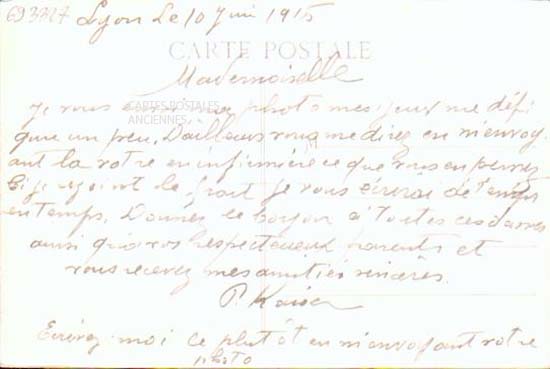 693327
Lyon Le 10 Juin 1915
CARTE POSTALE
Mademoiselle
je vous photo mes jeux me défi
CARTES POSTALES
ANCIENNES
gure un peu. D'ailleurs vous me direz en m'envoy
ant la votre en infirmière ce que vous en pensez
Si je rejoint le front je vous écrirai de temps
en temps. Donnez le bonjour à toutes ces dames
ainsi qu'à vos respectueux parents et
vous recevez mes amitiés sincères.
P. Kaiser
Ecrivez-moi ce plutôt en m'envoyant votre
photo